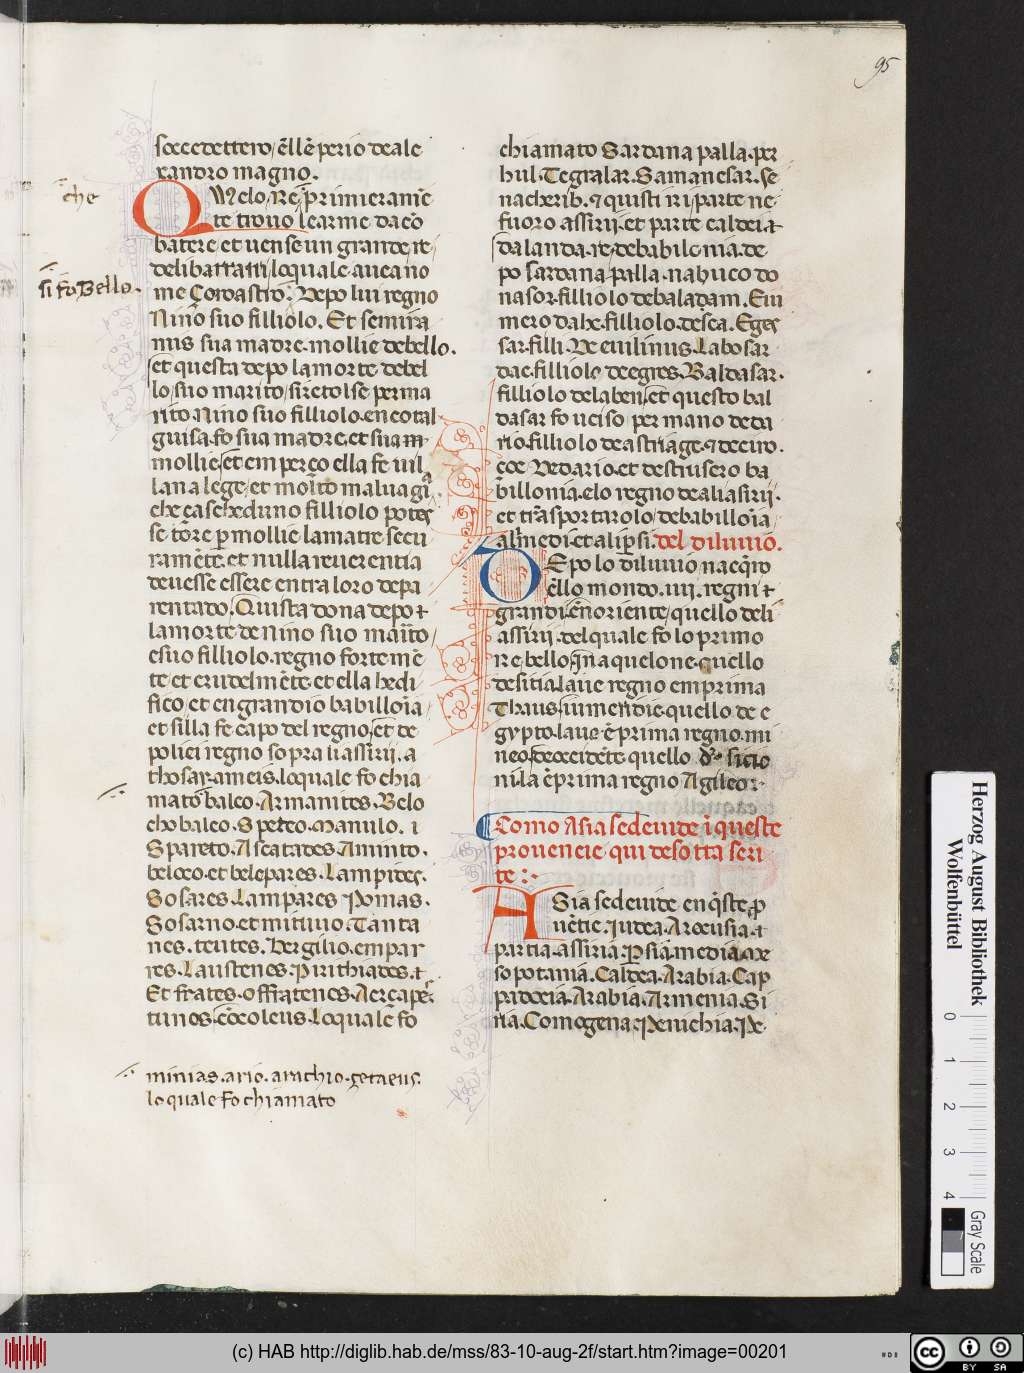 95
soccedettero, ēllē perio de ale
xandro magno.
che
Q Uelo. Re. primieramē
te trouo le arme da cō
batere et uense un grande re
de li battrani loquale aueano
si fo Bello.
me Coroastro. Depo lui regno
Nino suo filliolo. Et semira
mis sua madre mollie de bello.
et questa depo la morte de bel
lo suo marito, si retolse per ma
rito nino suo filliolo. en co tal
guisa. fo sua madre. et sua
mollie et emperço ella fe uil
lana lege, et molto maluagia.
che cascheduno filliolo potes
se tōre p mollie la matre secu
ramēte. et nulla reuerentia
deuesse essere entra loro de pa
rentado. Quista dona depo
la morte de nino suo marito
e suo filliolo. regno forte mē
te et crudelmēte et ella hedi
fico et engrandio babillōia
et silla fe capo del regno, et de
poi ei regno sopra li assirii. a
thosay. ameis. loquale fo chia
mato baleo. Armanites. Belo
cho baleo. Spereo. Manulo. i
Spareto. Ascatades. Aminto.
beloco. et belepares. Lampides.
Sosares. Lampares. Panias.
Sosarno. et mitiuo. Tanta
nes. teutes. Hergilio. empar
res. Laustenes. Pirithiades. et
Et frates. Offratenes. Acrcape.
tunos. cōcoleus. Loquale fo
minias. ario. arachio. getaeus.
lo quale fo chiamato
chiamato Sardana palla. per
hul. Tegralar. Samanesar. Se
nacherib. et quisti iri parte ne
fuoro assirii et parte caldei et
dalanda. re. de babilonia. de
po sardana palla. nabuco do
nasor. filliolo de baladam. Eui
mero dahe. filliolo. de sca. Eges
sar. filli. De euilinus. Labosar
dac. filliolo de egres. Baldasar.
filliolo de laben. et questo bal
dasar fo ucciso per mano de da
rio. filliolo de astriage. et de ciro.
coe De dario. et destrusero ba
billonia. e lo regno de ali asirii.
et trasportarolo de babillōia
al medi. et ali psi. del diluuio.
D Epo lo diluuio nacqro
ello mondo. iiii. regni et
grandi. ēn oriente, quello deli
assirii. del quale fo lo primo
re. bello. qn aquelone. quello
de sitia. laue regno emprima
Thaus. iu meridie. quello de e
gypto. laue ēprima regno. mi
neo. de occidēte quello de sicio
nula ēprima regno Agileo:
Como Asia se deuide ī queste
prouencie qui de sotta scri
te :·
A Sia se deuide en qste p
uētie. Iudea. Arocusia. et
partia. assiria. Psia. media. Me
sopotania. Caldea. Arabia. Cap
padocia. Arabia. Armenia. Si
ria. Comogena. Phenichia. Pe
Herzog August Bibliothek
Wolfenbüttel
0 1 2 3 4
Gray Scale
(c) HAB http://diglib.hab.de/mss/83-10-aug-2f/start.htm?image=00201
cc BY SA